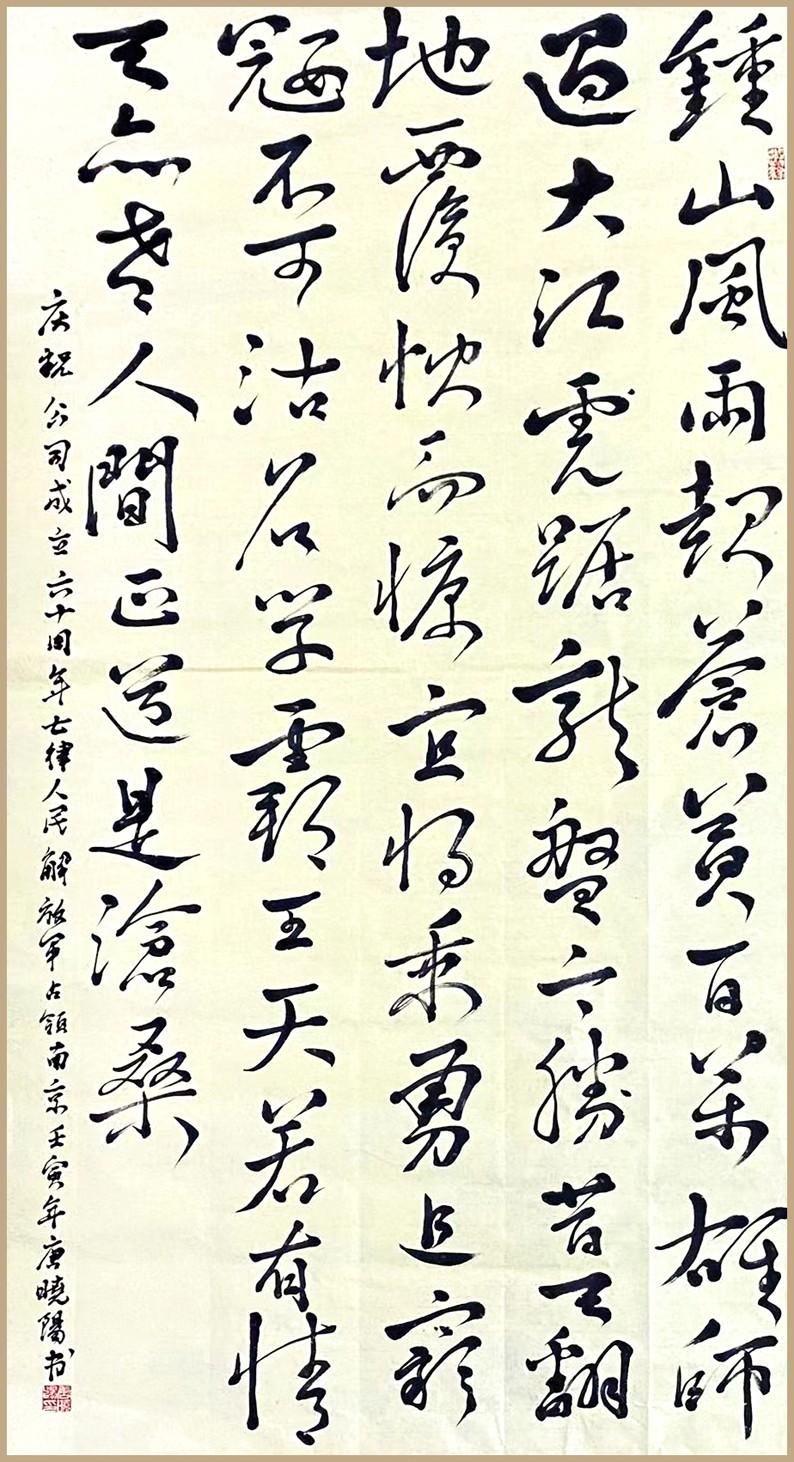 鍾山風雨起蒼黃百萬雄師
過大江虎踞龍盤今勝昔天翻
地覆慨而慷宜將乘勇追窮
寇不可沽名學霸王天若有情
天亦老人間正道是滄桑
庆祝公司成立六十周年七律人民解放军占領南京壬寅年唐曉陽书